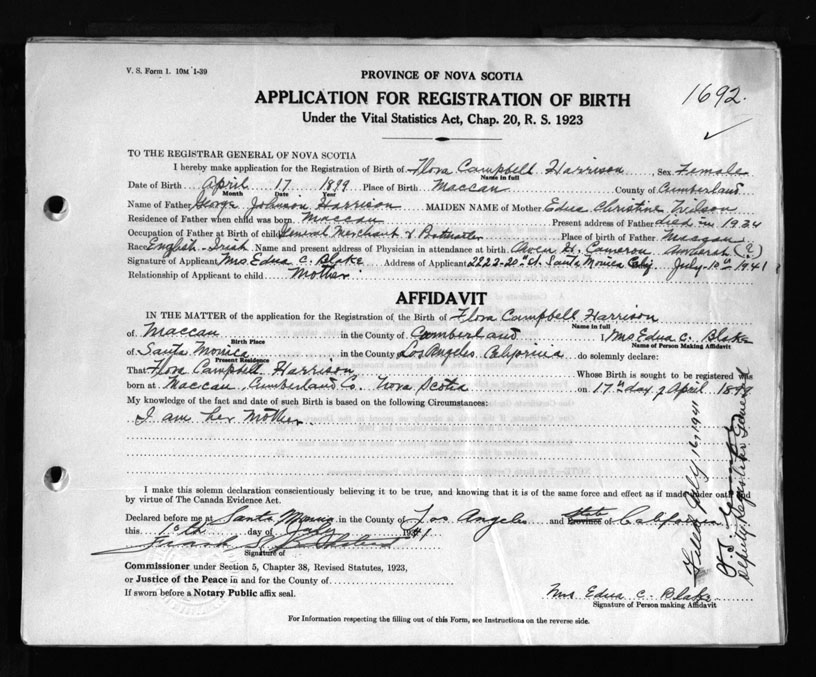 V. S. Form 1. 10M 1-39
PROVINCE OF NOVA SCOTIA
1692.
APPLICATION FOR REGISTRATION OF BIRTH
Under the Vital Statistics Act, Chap. 20, R. S. 1923
TO THE REGISTRAR GENERAL OF NOVA SCOTIA
I hereby make application for the Registration of Birth of Flora Campbell Harrison, Sex Female
Name in full
Date of Birth April 17 1899 Place of Birth Maccan County of Cumberland
Month Date Year
Name of Father George Johnson Harrison MAIDEN NAME of Mother Edna Christine
Residence of Father when child was born Maccan Present address of Father died in 1934
Occupation of Father at Birth of child General Merchant & Postmaster Place of birth of Father
Race English-Irish Name and present address of Physician in attendance at birth D. Cameron Amherst (?)
Signature of Applicant Mrs Edna C. Blake Address of Applicant 2223-20th St. Santa Monica Calif July-10th 1941
Relationship of Applicant to child Mother
AFFIDAVIT
IN THE MATTER of the application for the Registration of the Birth of Flora Campbell Harrison
Name in full
of Maccan in the County of Cumberland I, Mrs Edna C. Blake
Birth Place Name of Person Making Affidavit
of Santa Monica in the County of Los Angeles California do solemnly declare:
Present Residence
That Flora Campbell Harrison Whose Birth is sought to be registered was
born at Maccan, Cumberland Co. Nova Scotia on 17th day of April 1899
My knowledge of the fact and date of such Birth is based on the following Circumstances:
I am her Mother.
I make this solemn declaration conscientiously believing it to be true, and knowing that it is of the same force and effect as if made under oath and
by virtue of The Canada Evidence Act.
Declared before me at Santa Monica in the County of Los Angeles and State Province of California
this 10th day of July 1941
Frank
Signature of
Commissioner under Section 5, Chapter 38, Revised Statutes, 1923,
or Justice of the Peace in and for the County of
If sworn before a Notary Public affix seal.
Mrs Edna C. Blake
Signature of Person making Affidavit
For Information respecting the filling out of this Form, see Instructions on the reverse side.
Filed July 16, 1941
Deputy Registrar General